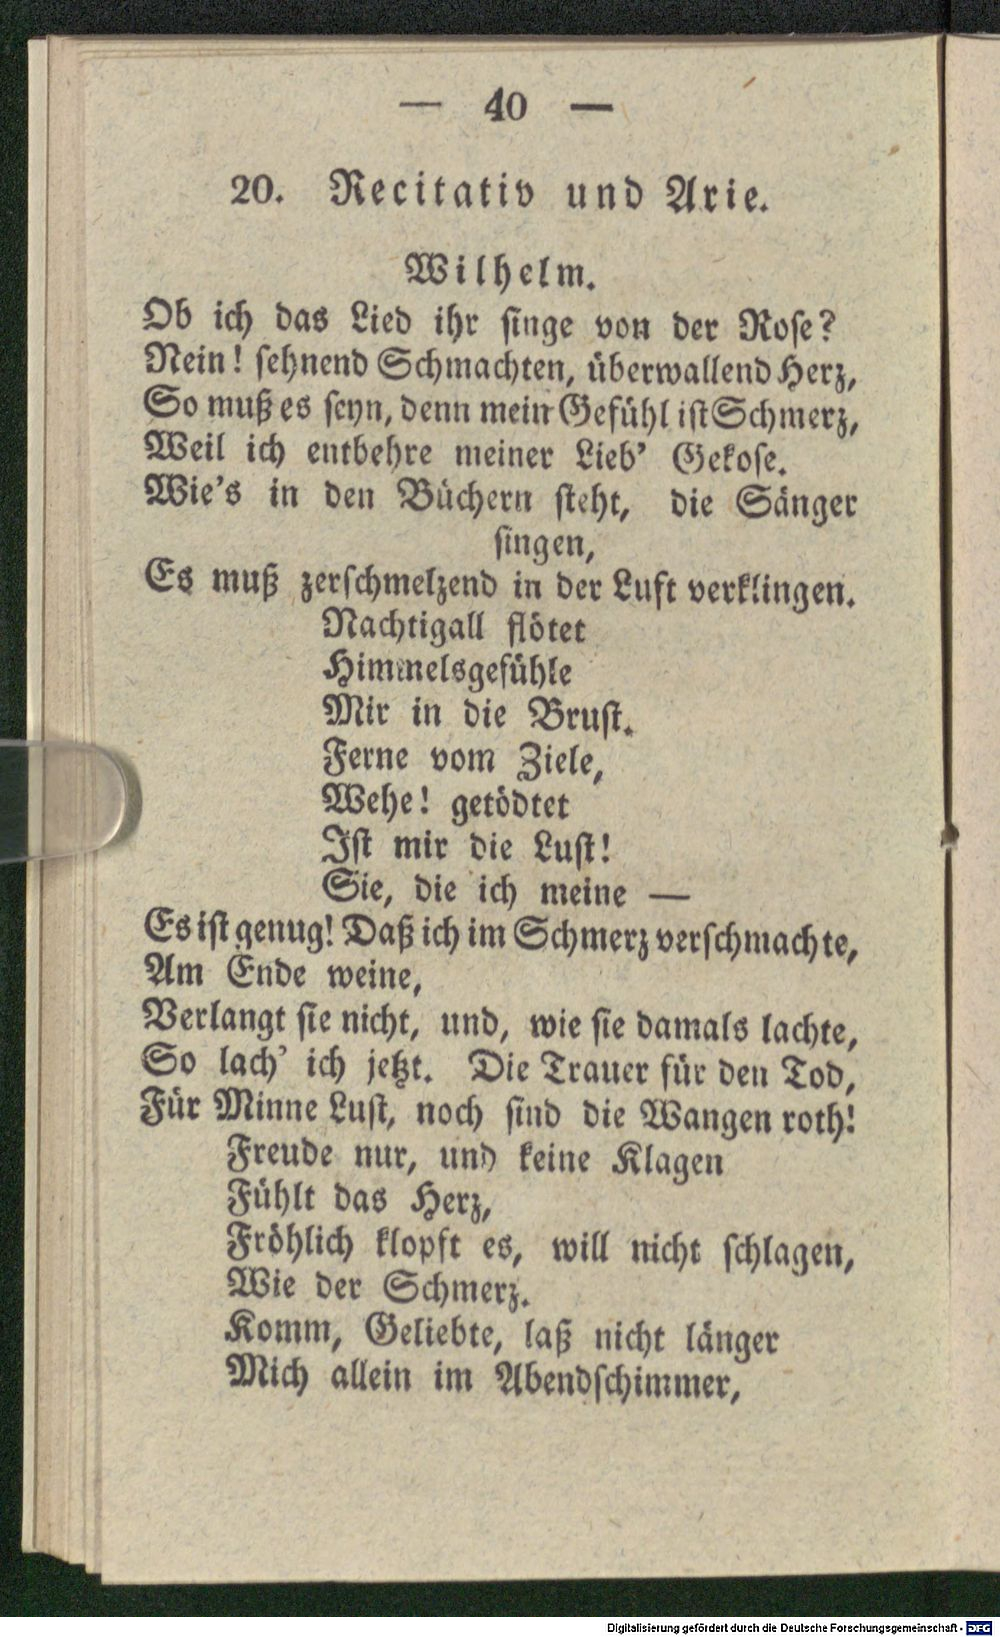 — 40 —
20. Recitativ und Arie.
Wilhelm.
Ob ich das Lied ihr singe von der Rose?
Nein! sehnend Schmachten, überwallend Herz,
So muß es seyn, denn mein Gefühl ist Schmerz,
Weil ich entbehre meiner Lieb' Gekose.
Wie's in den Büchern steht, die Sänger
singen,
Es muß zerschmelzend in der Luft verklingen.
Nachtigall flötet
Himmelsgefühle
Mir in die Brust.
Ferne vom Ziele,
Wehe! getödtet
Ist mir die Lust!
Sie, die ich meine —
Es ist genug! Daß ich im Schmerz verschmachte,
Am Ende weine,
Verlangt sie nicht, und, wie sie damals lachte,
So lach' ich jetzt. Die Trauer für den Tod,
Für Minne Lust, noch sind die Wangen roth!
Freude nur, und keine Klagen
Fühlt das Herz,
Fröhlich klopft es, will nicht schlagen,
Wie der Schmerz.
Komm, Geliebte, laß nicht länger
Mich allein im Abendschimmer,
Digitalisierung gefördert durch die Deutsche Forschungsgemeinschaft - DFG